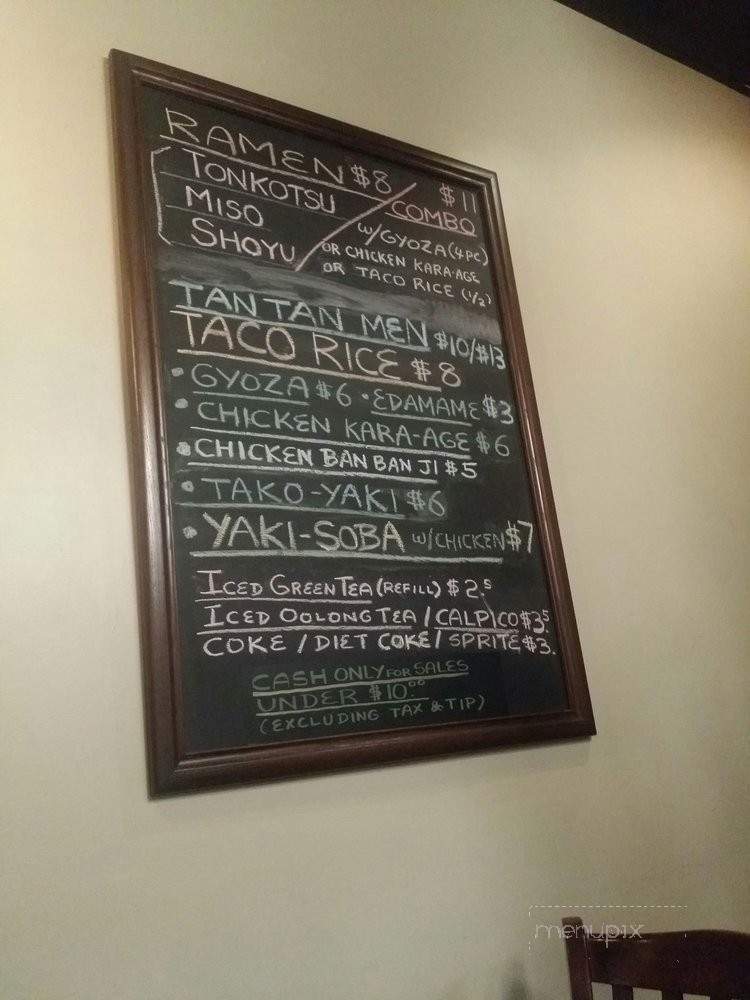 RAMEN $8 / $11
TONKOTSU COMBO
MISO w/GYOZA (4PC)
SHOYU OR CHICKEN KARA-AGE
OR TACO RICE (1/2)
TAN TAN MEN $10/$13
TACO RICE $8
• GYOZA $6 • EDAMAME $3
• CHICKEN KARA-AGE $6
• CHICKEN BAN BAN JI $5
• TAKO-YAKI $6
• YAKI-SOBA w/CHICKEN $7
ICED GREEN TEA (REFILL) $2.5
ICED OOLONG TEA / CALPICO $3.5
COKE / DIET COKE / SPRITE $3.
CASH ONLY FOR SALES
UNDER $10.00
(EXCLUDING TAX & TIP)
menupix